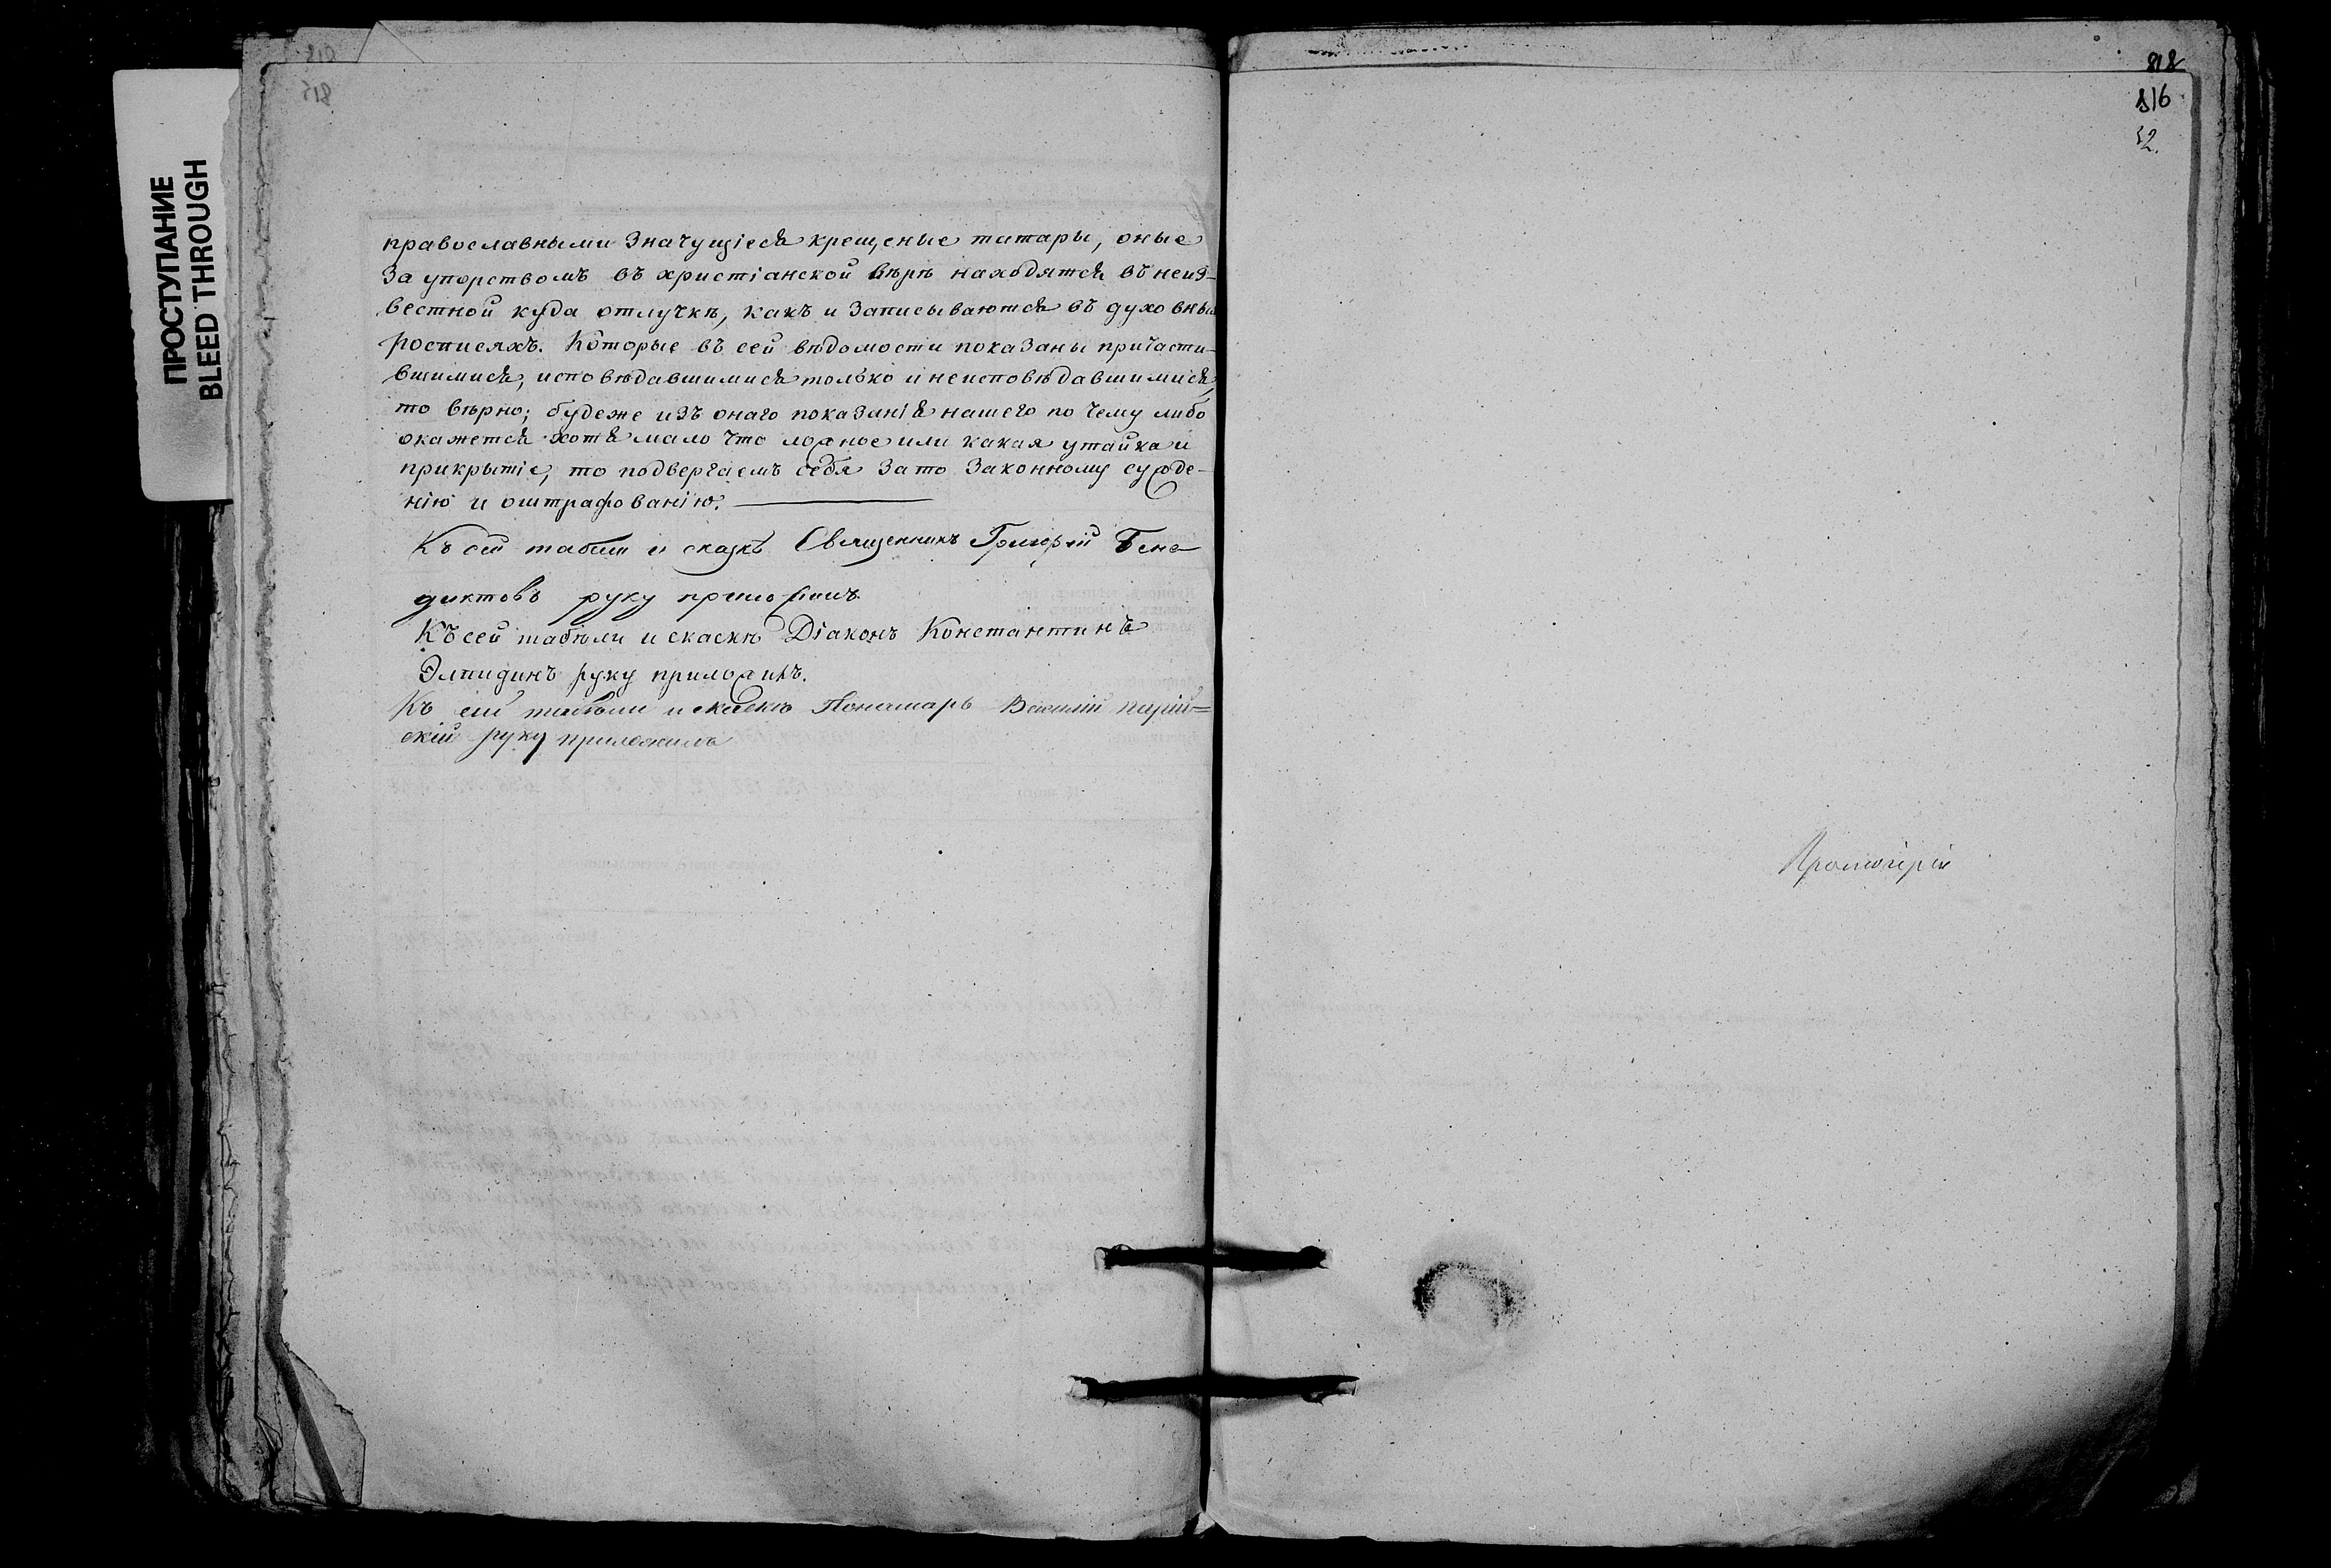 ПРОСТУПАНИЕ
BLEED THROUGH
православными значущіеся крещеные татары, оные
за упорствомъ въ христіанской вѣрѣ находятся въ неиз-
вестной куда отлучкѣ, какъ и записываются въ духовныхъ
росписяхъ. Которые въ сей вѣдомости показаны причасти-
вшимися, исповѣдавшимися только и неисповѣдавшимися,
то вѣрно; будеже изъ онаго показанія нашего по чему либо
окажется хотя мало что ложное или какая утайка и
прикрытіе, то подвергаемъ себя за то законному сужде-
нію и оштрафованію.
Къ сей табели и сказкѣ Священникъ Григорій Бене-
диктовъ руку приложилъ
Къ сей табѣли и скаскѣ Діаконъ Константинъ
Элпидинъ руку приложилъ.
Къ сей табели и скаскѣ Пономарь Василій
скій руку приложилъ
818
816
52.